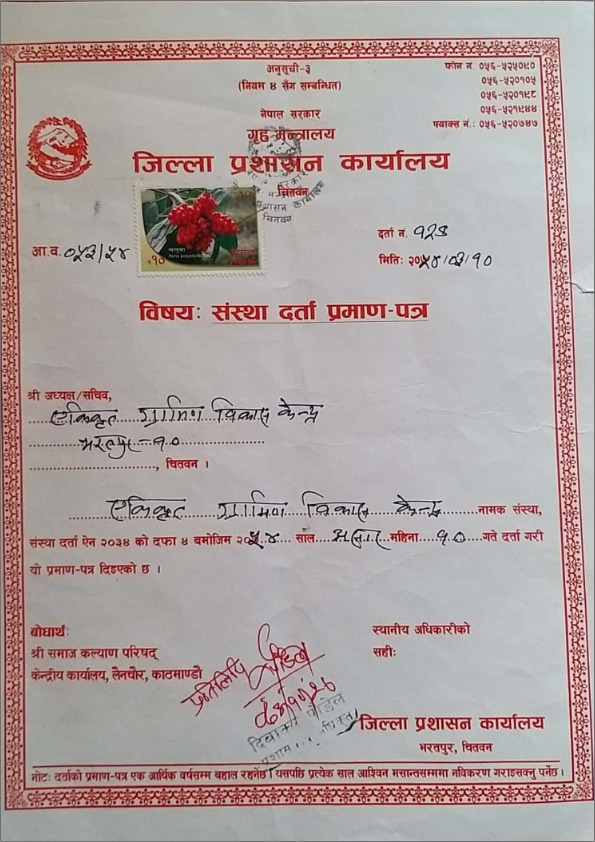 अनुसूची-३
(नियम ४ सँग सम्बन्धित)
फोन नं. ०५६-५२५०९०
०५६-५२०१०५
०५६-५२०१९८
०५६-५२१९४४
फ्याक्स नं.: ०५६-५२०७४७
नेपाल सरकार
गृह मन्त्रालय
जिल्ला प्रशासन कार्यालय
चितवन
प्रशासन कार्यालय
चितवन
रु १०
आ.व. ०५३/५४
दर्ता नं. १२७
मितिः २०५४/०३/१०
विषयः संस्था दर्ता प्रमाण-पत्र
श्री अध्यक्ष/सचिव,
एकिकृत ग्रामिण विकास केन्द्र
भरतपुर-१०
, चितवन ।
एकिकृत ग्रामिण विकास केन्द्र नामक संस्था,
संस्था दर्ता ऐन २०३४ को दफा ४ बमोजिम २०५४ साल असार महिना १० गते दर्ता गरी
यो प्रमाण-पत्र दिइएको छ ।
बोधार्थः
श्री समाज कल्याण परिषद्
केन्द्रीय कार्यालय, लैनचौर, काठमाण्डौ
स्थानीय अधिकारीको
सहीः
प्रतिलिपि
दिवाकर पौडेल
जिल्ला प्रशासन कार्यालय
भरतपुर, चितवन
नोटः दर्ताको प्रमाण-पत्र एक आर्थिक वर्षसम्म बहाल रहनेछ । यसपछि प्रत्येक साल आश्विन मसान्तसम्ममा नविकरण गराइसक्नु पर्नेछ ।